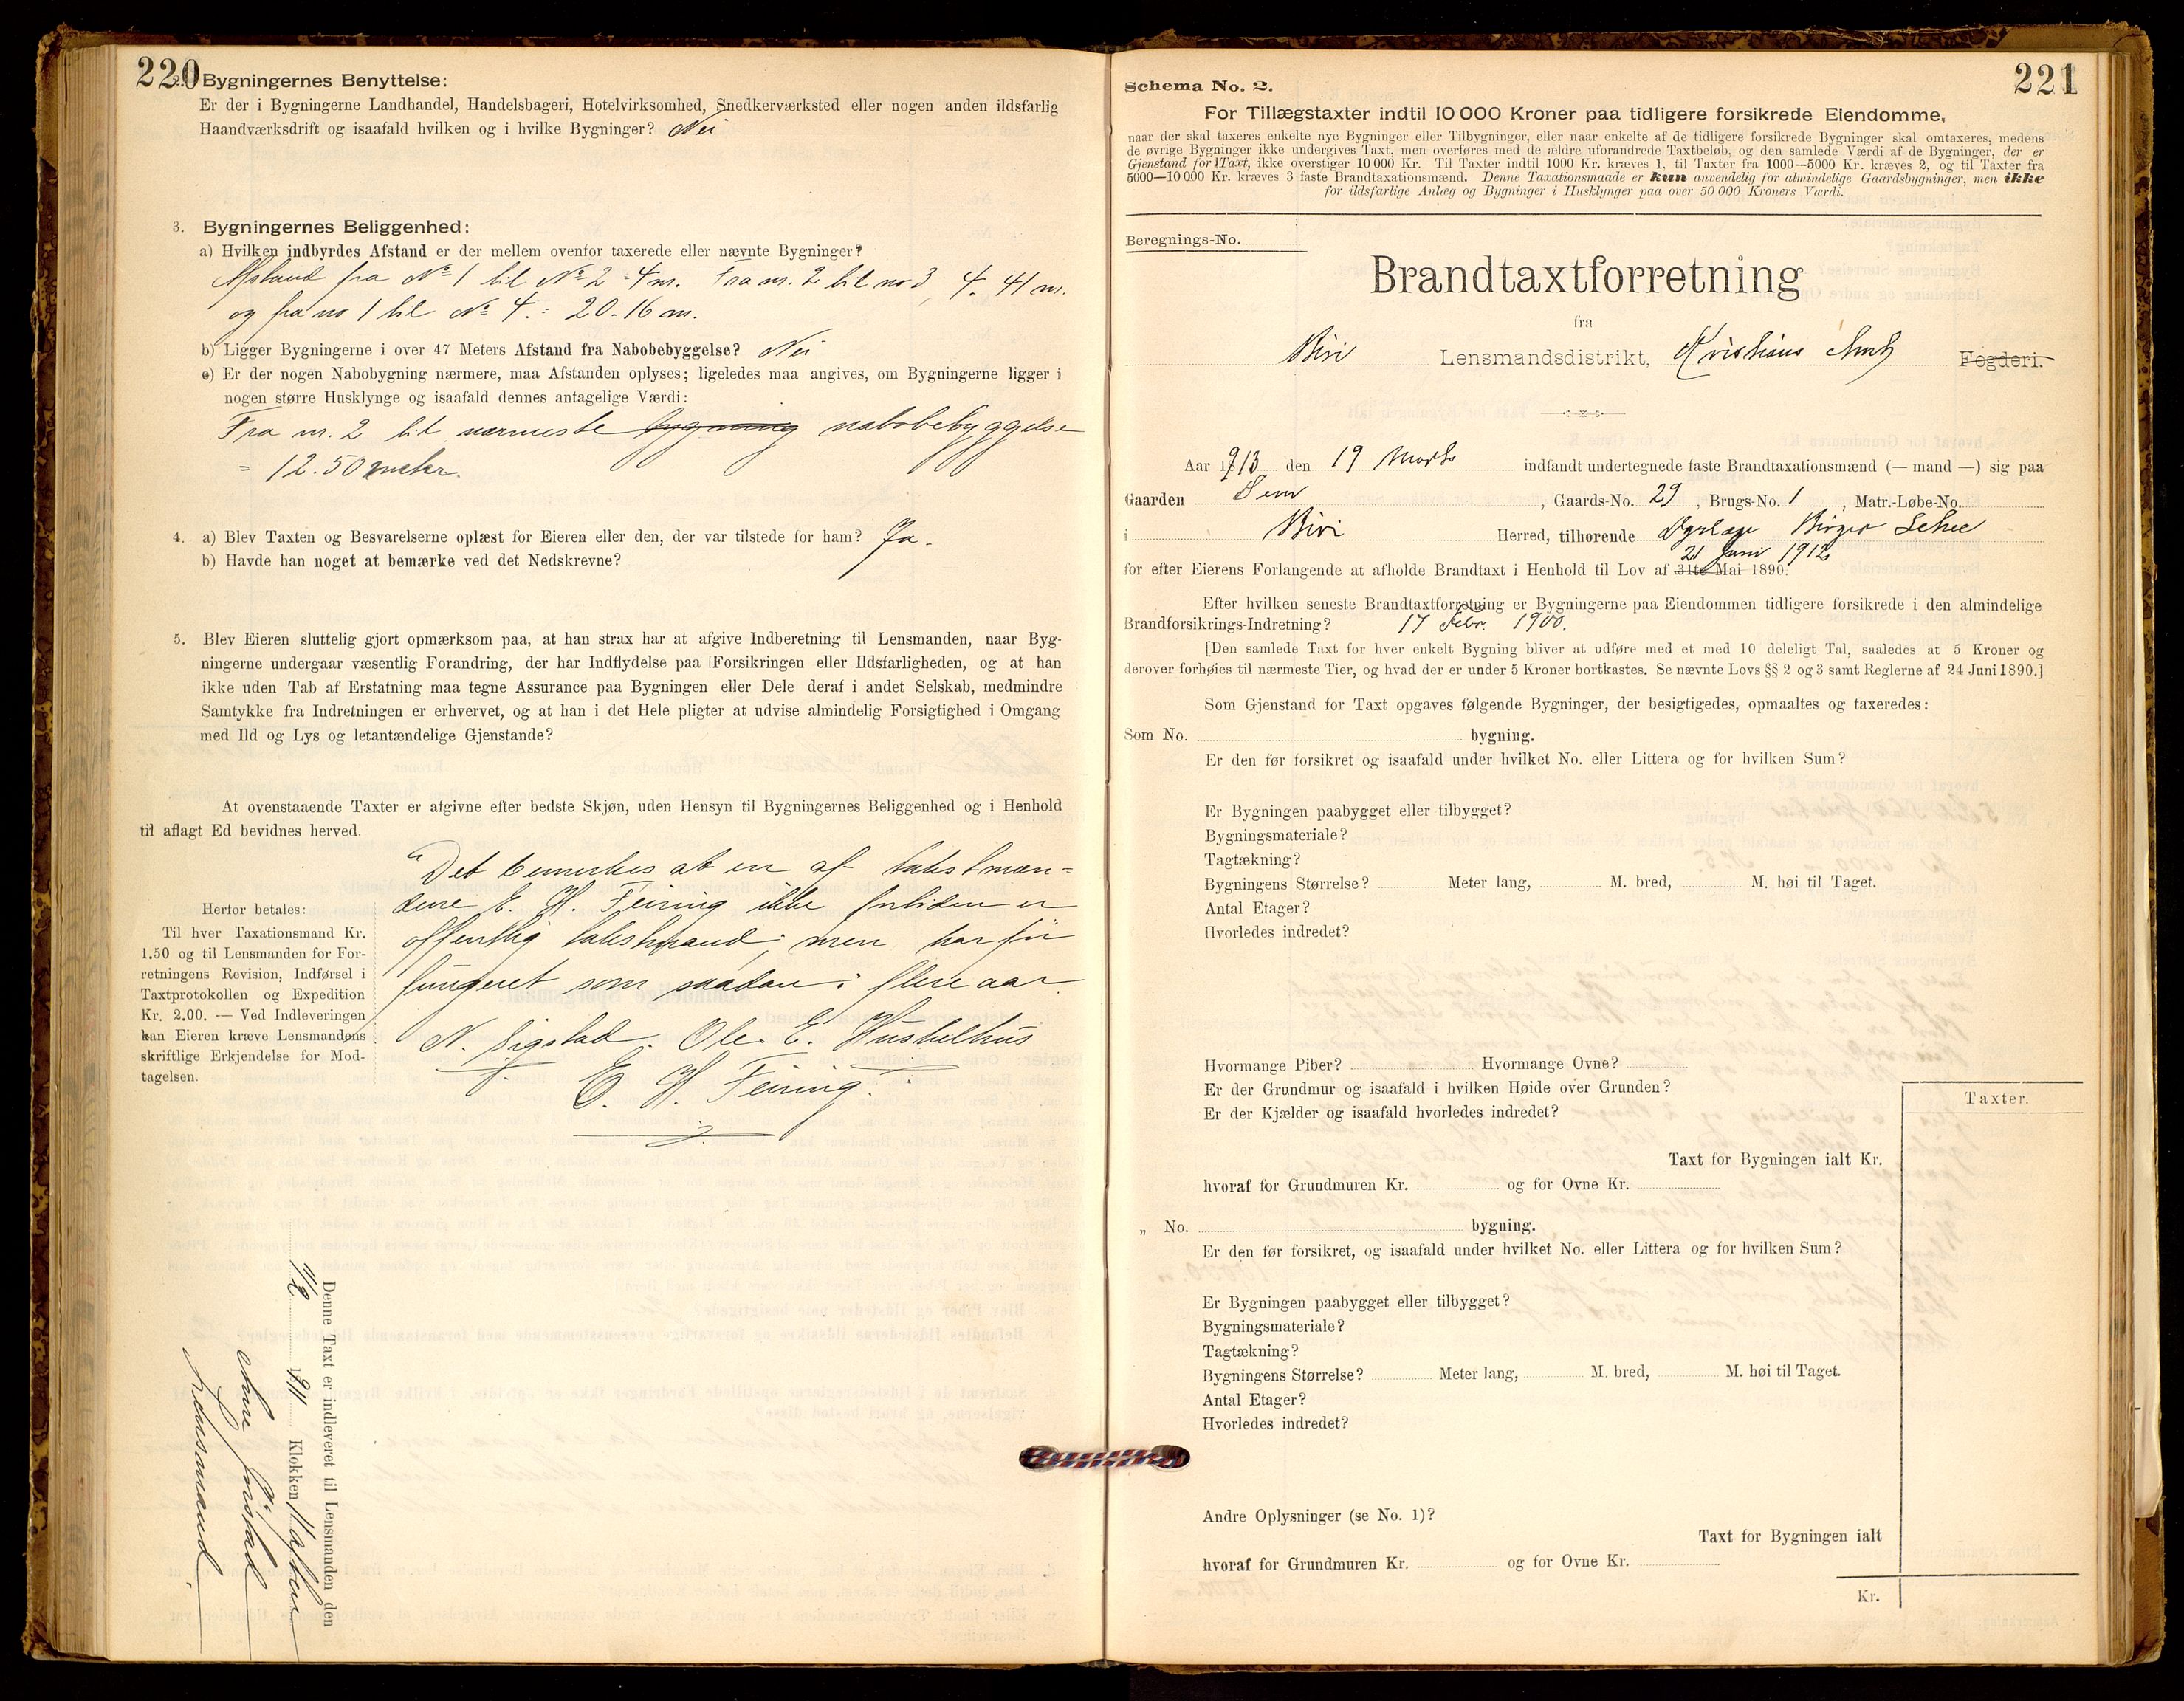 220
2. Bygningernes Benyttelse:
Er der i Bygningerne Landhandel, Handelsbageri, Hotelvirksomhed, Snedkerværksted eller nogen anden ildsfarlig
Haandværksdrift og isaafald hvilken og i hvilke Bygninger? Nei
3. Bygningernes Beliggenhed:
a) Hvilken indbyrdes Afstand er der mellem ovenfor taxerede eller nævnte Bygninger?
Afstand fra No 1 til No 2 = 4 m. Fra nr. 2 til no 3, 4.41 m.
og fra no 1 til No 4.: 20.16 m.
b) Ligger Bygningerne i over 47 Meters Afstand fra Nabobebyggelse? Nei
c) Er der nogen Nabobygning nærmere, maa Afstanden oplyses; ligeledes maa angives, om Bygningerne ligger i
nogen større Husklynge og isaafald dennes antagelige Værdi:
Fra nr. 2 til nærmeste bygning nabobebyggelse
= 12.50 meter.
4. a) Blev Taxten og Besvarelserne oplæst for Eieren eller den, der var tilstede for ham? Ja.
b) Havde han noget at bemærke ved det Nedskrevne?
5. Blev Eieren sluttelig gjort opmærksom paa, at han strax har at afgive Indberetning til Lensmanden, naar Byg-
ningerne undergaar væsentlig Forandring, der har Indflydelse paa Forsikringen eller Ildsfarligheden, og at han
ikke uden Tab af Erstatning maa tegne Assurance paa Bygningen eller Dele deraf i andet Selskab, medmindre
Samtykke fra Indretningen er erhvervet, og at han i det Hele pligter at udvise almindelig Forsigtighed i Omgang
med Ild og Lys og letantændelige Gjenstande?
At ovenstaaende Taxter er afgivne efter bedste Skjøn, uden Hensyn til Bygningernes Beliggenhed og i Henhold
til aflagt Ed bevidnes herved.
Det bemerkes at en af takstmæn-
dene E. H. Feiring ikke fortiden er
offentlig takstmand; men har før
fungeret som saadan i flere aar
N. Sigstad. Ole E. Hustelhus
E. H. Feiring.
Herfor betales:
Til hver Taxationsmand Kr.
1.50 og til Lensmanden for For-
retningens Revision, Indførsel i
Taxtprotokollen og Expedition
Kr. 2.00. — Ved Indleveringen
kan Eieren kræve Lensmandens
skriftlige Erkjendelse for Mod-
tagelsen.
Denne Taxt er indleveret til Lensmanden den
1911 Klokken 11 aften
Lensmand.
221
Schema No. 2.
For Tillægstaxter indtil 10 000 Kroner paa tidligere forsikrede Eiendomme,
naar der skal taxeres enkelte nye Bygninger eller Tilbygninger, eller naar enkelte af de tidligere forsikrede Bygninger skal omtaxeres, medens
de øvrige Bygninger ikke undergives Taxt, men overføres med de ældre uforandrede Taxtbeløb, og den samlede Værdi af de Bygninger, der er
Gjenstand for Taxt, ikke overstiger 10 000 Kr. Til Taxter indtil 1000 Kr. kræves 1, til Taxter fra 1000—5000 Kr. kræves 2, og til Taxter fra
5000—10 000 Kr. kræves 3 faste Brandtaxationsmænd. Denne Taxationsmaade er kun anvendelig for almindelige Gaardsbygninger, men ikke
for ildsfarlige Anlæg og Bygninger i Husklynger paa over 50 000 Kroners Værdi.
Beregnings-No.
Brandtaxtforretning
fra
Biri Lensmandsdistrikt, Kristians Amt Fogderi.
Aar 1913 den 19 Marts indfandt undertegnede faste Brandtaxationsmænd (— mand —) sig paa
Gaarden Sem, Gaards-No. 29, Brugs-No. 1, Matr.-Løbe-No.
i Biri Herred, tilhørende Dyrlæge Birger
21 Juni 1912
for efter Eierens Forlangende at afholde Brandtaxt i Henhold til Lov af 31te Mai 1890.
Efter hvilken seneste Brandtaxtforretning er Bygningerne paa Eiendommen tidligere forsikrede i den almindelige
Brandforsikrings-Indretning? 17 Febr. 1900.
[Den samlede Taxt for hver enkelt Bygning bliver at udføre med et med 10 deleligt Tal, saaledes at 5 Kroner og
derover forhøies til nærmeste Tier, og hvad der er under 5 Kroner bortkastes. Se nævnte Lovs §§ 2 og 3 samt Reglerne af 24 Juni 1890.]
Som Gjenstand for Taxt opgaves følgende Bygninger, der besigtigedes, opmaaltes og taxeredes:
Som No. bygning.
Er den før forsikret og isaafald under hvilket No. eller Littera og for hvilken Sum?
Er Bygningen paabygget eller tilbygget?
Bygningsmateriale?
Tagtækning?
Bygningens Størrelse? Meter lang, M. bred, M. høi til Taget.
Antal Etager?
Hvorledes indredet?
Hvormange Piber? Hvormange Ovne?
Er der Grundmur og isaafald i hvilken Høide over Grunden?
Er der Kjælder og isaafald hvorledes indredet?
Taxter.
Taxt for Bygningen ialt Kr.
hvoraf for Grundmuren Kr. og for Ovne Kr.
„ No. bygning.
Er den før forsikret, og isaafald under hvilket No. eller Littera og for hvilken Sum?
Er Bygningen paabygget eller tilbygget?
Bygningsmateriale?
Tagtækning?
Bygningens Størrelse? Meter lang, M. bred, M. høi til Taget.
Antal Etager?
Hvorledes indredet?
Andre Oplysninger (se No. 1)?
Taxt for Bygningen ialt
hvoraf for Grundmuren Kr. og for Ovne Kr.
Kr.